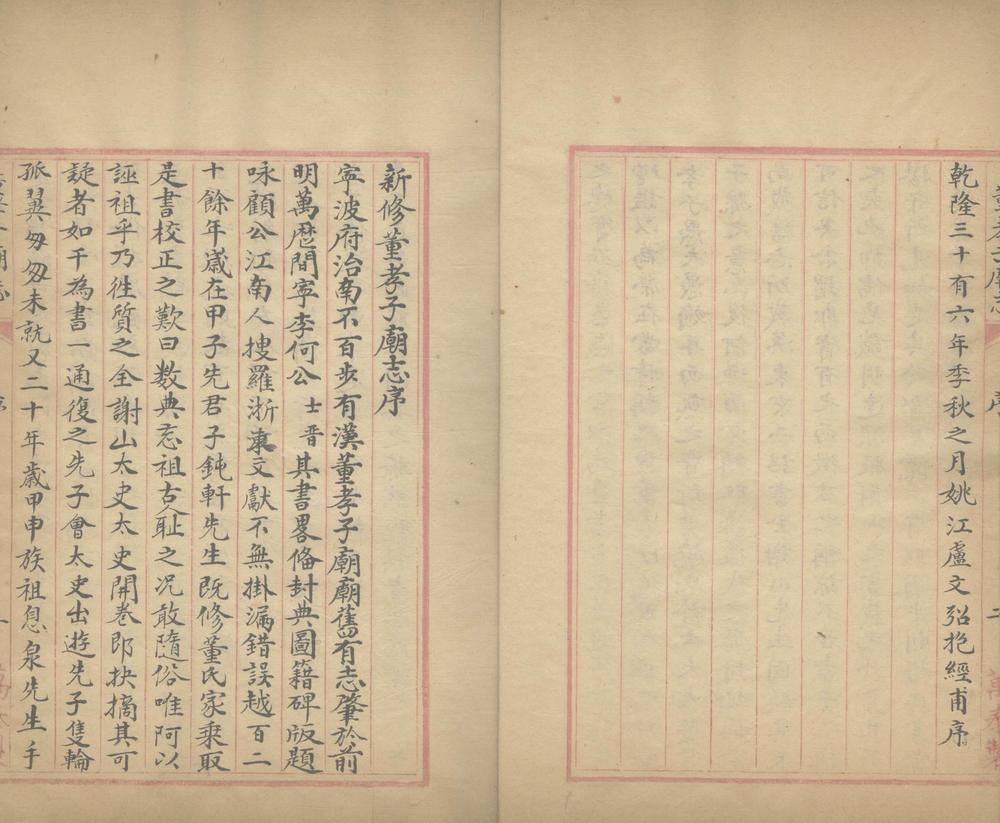 乾隆三十有六年季秋之月姚江盧文弨抱經甫序
新修董孝子廟志序
寧波府治南不百步有漢董孝子廟廟舊有志肇於前
明萬歷間寧李何公士晉其書畧俻封典圖籍碑版題
咏顧公江南人搜羅浙東文獻不無掛漏錯誤越百二
十餘年歲在甲子先君子鈍軒先生既修董氏家乘取
是書校正之歎曰数典忘祖古人耻之况敢隨俗唯阿以
誣祖乎乃徃質之全謝山太史太史開卷即抉摘其可
疑者如干為書一通復之先子會太史出遊先子隻輪
孤翼匆匆未就又二十年歲甲申族祖息泉先生手